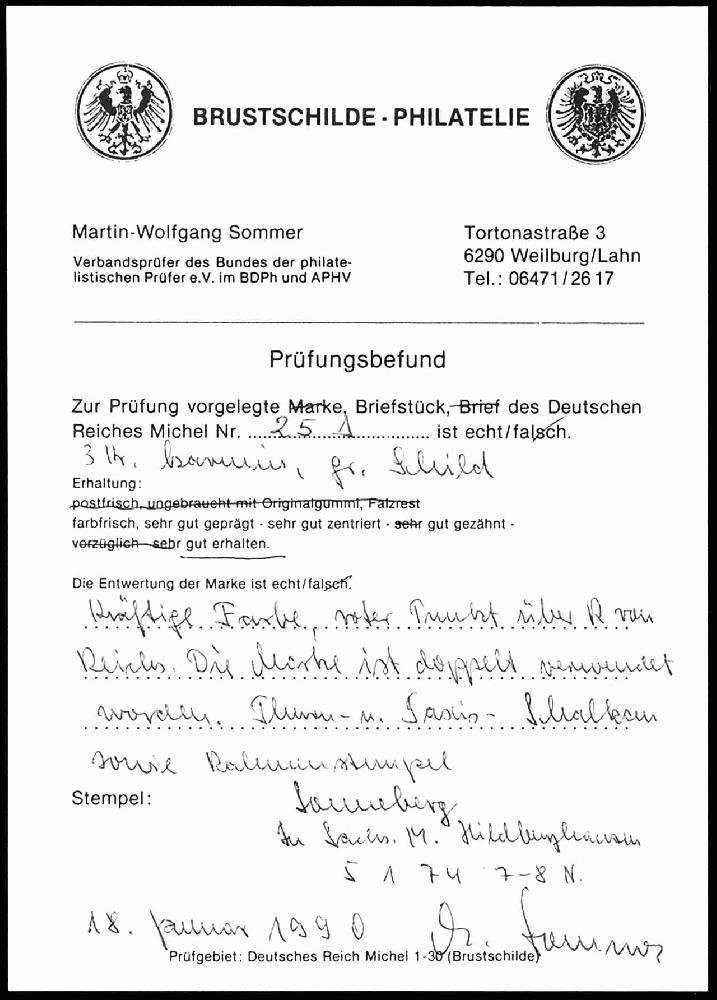 BRUSTSCHILDE - PHILATELIE
Martin-Wolfgang Sommer
Verbandsprüfer des Bundes der philate-
listischen Prüfer e.V. im BDPh und APHV
Tortonastraße 3
6290 Weilburg/Lahn
Tel.: 06471/26 17
Prüfungsbefund
Zur Prüfung vorgelegte Marke, Briefstück, Brief des Deutschen
Reiches Michel Nr. 25 ist echt/falsch.
3 Kr. karmin, gr. Schild
Erhaltung:
postfrisch, ungebraucht mit Originalgummi, Falzrest
farbfrisch, sehr gut geprägt - sehr gut zentriert - sehr gut gezähnt -
vorzüglich - sehr gut erhalten.
Die Entwertung der Marke ist echt/falsch.
Kräftige Farbe, roter Punkt über R von
Reichs. Die Marke ist doppelt verwendet
worden. Thurn- u. Taxis- Schalkau
sowie Rahmenstempel
Stempel:
Sonneberg
In Sachs. M. Hildburghausen
5 1 74 7-8 N.
18. Januar 1990 Sommer
Prüfgebiet: Deutsches Reich Michel 1-30 (Brustschilde)